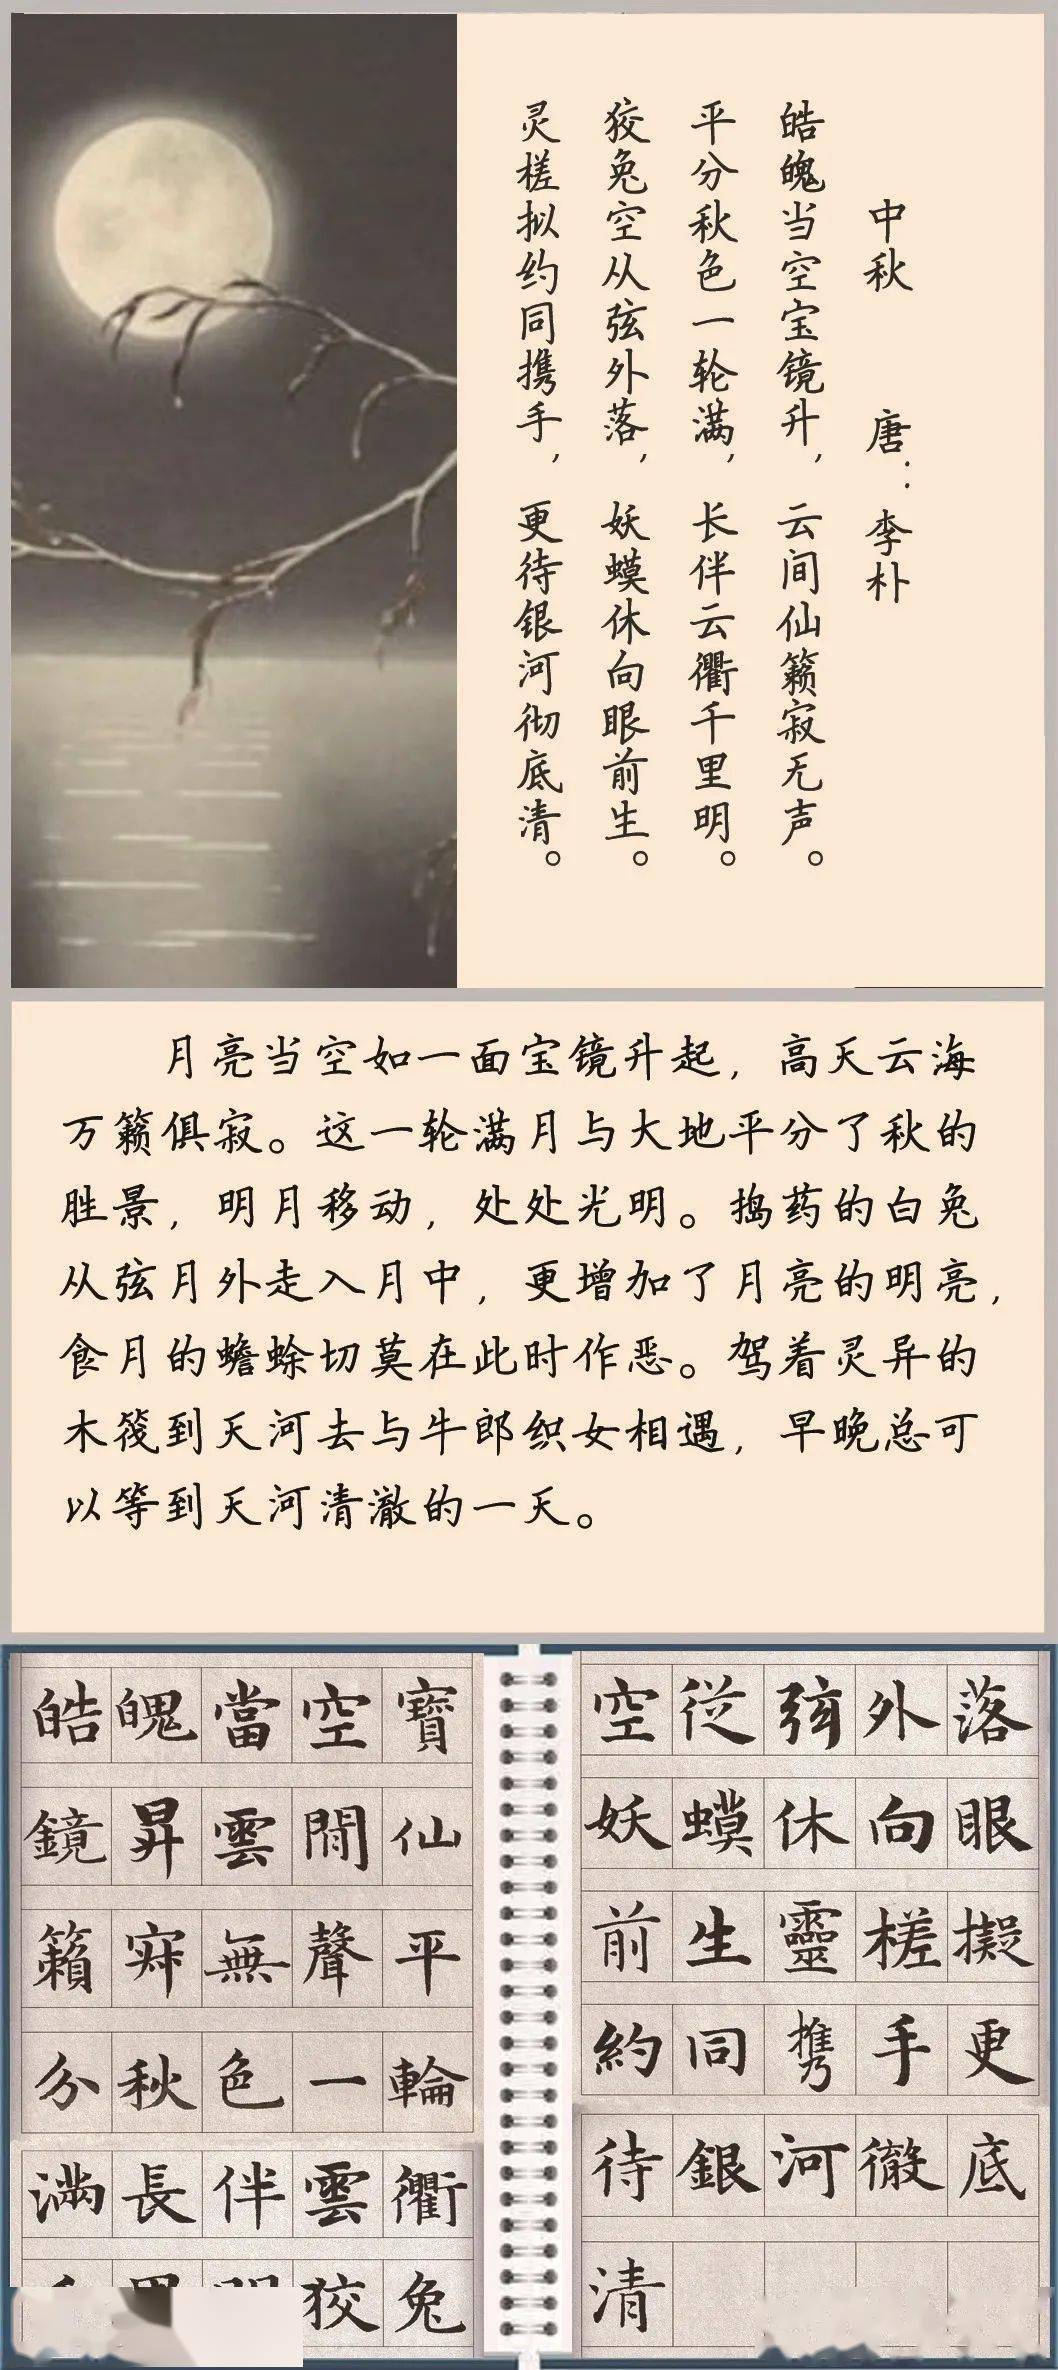 中秋 唐：李朴
皓魄当空宝镜升，云间仙籁寂无声。
平分秋色一轮满，长伴云衢千里明。
狡兔空从弦外落，妖蟆休向眼前生。
灵槎拟约同携手，更待银河彻底清。
月亮当空如一面宝镜升起，高天云海
万籁俱寂。这一轮满月与大地平分了秋的
胜景，明月移动，处处光明。捣药的白兔
从弦月外走入月中，更增加了月亮的明亮，
食月的蟾蜍切莫在此时作恶。驾着灵异的
木筏到天河去与牛郎织女相遇，早晚总可
以等到天河清澈的一天。
皓魄當空寶
鏡昇雲間仙
籟寂無聲平
分秋色一輪
满長伴雲衢
狡兔
空從弦外落
妖蟆休向眼
前生靈槎擬
約同携手更
待銀河徹底
清